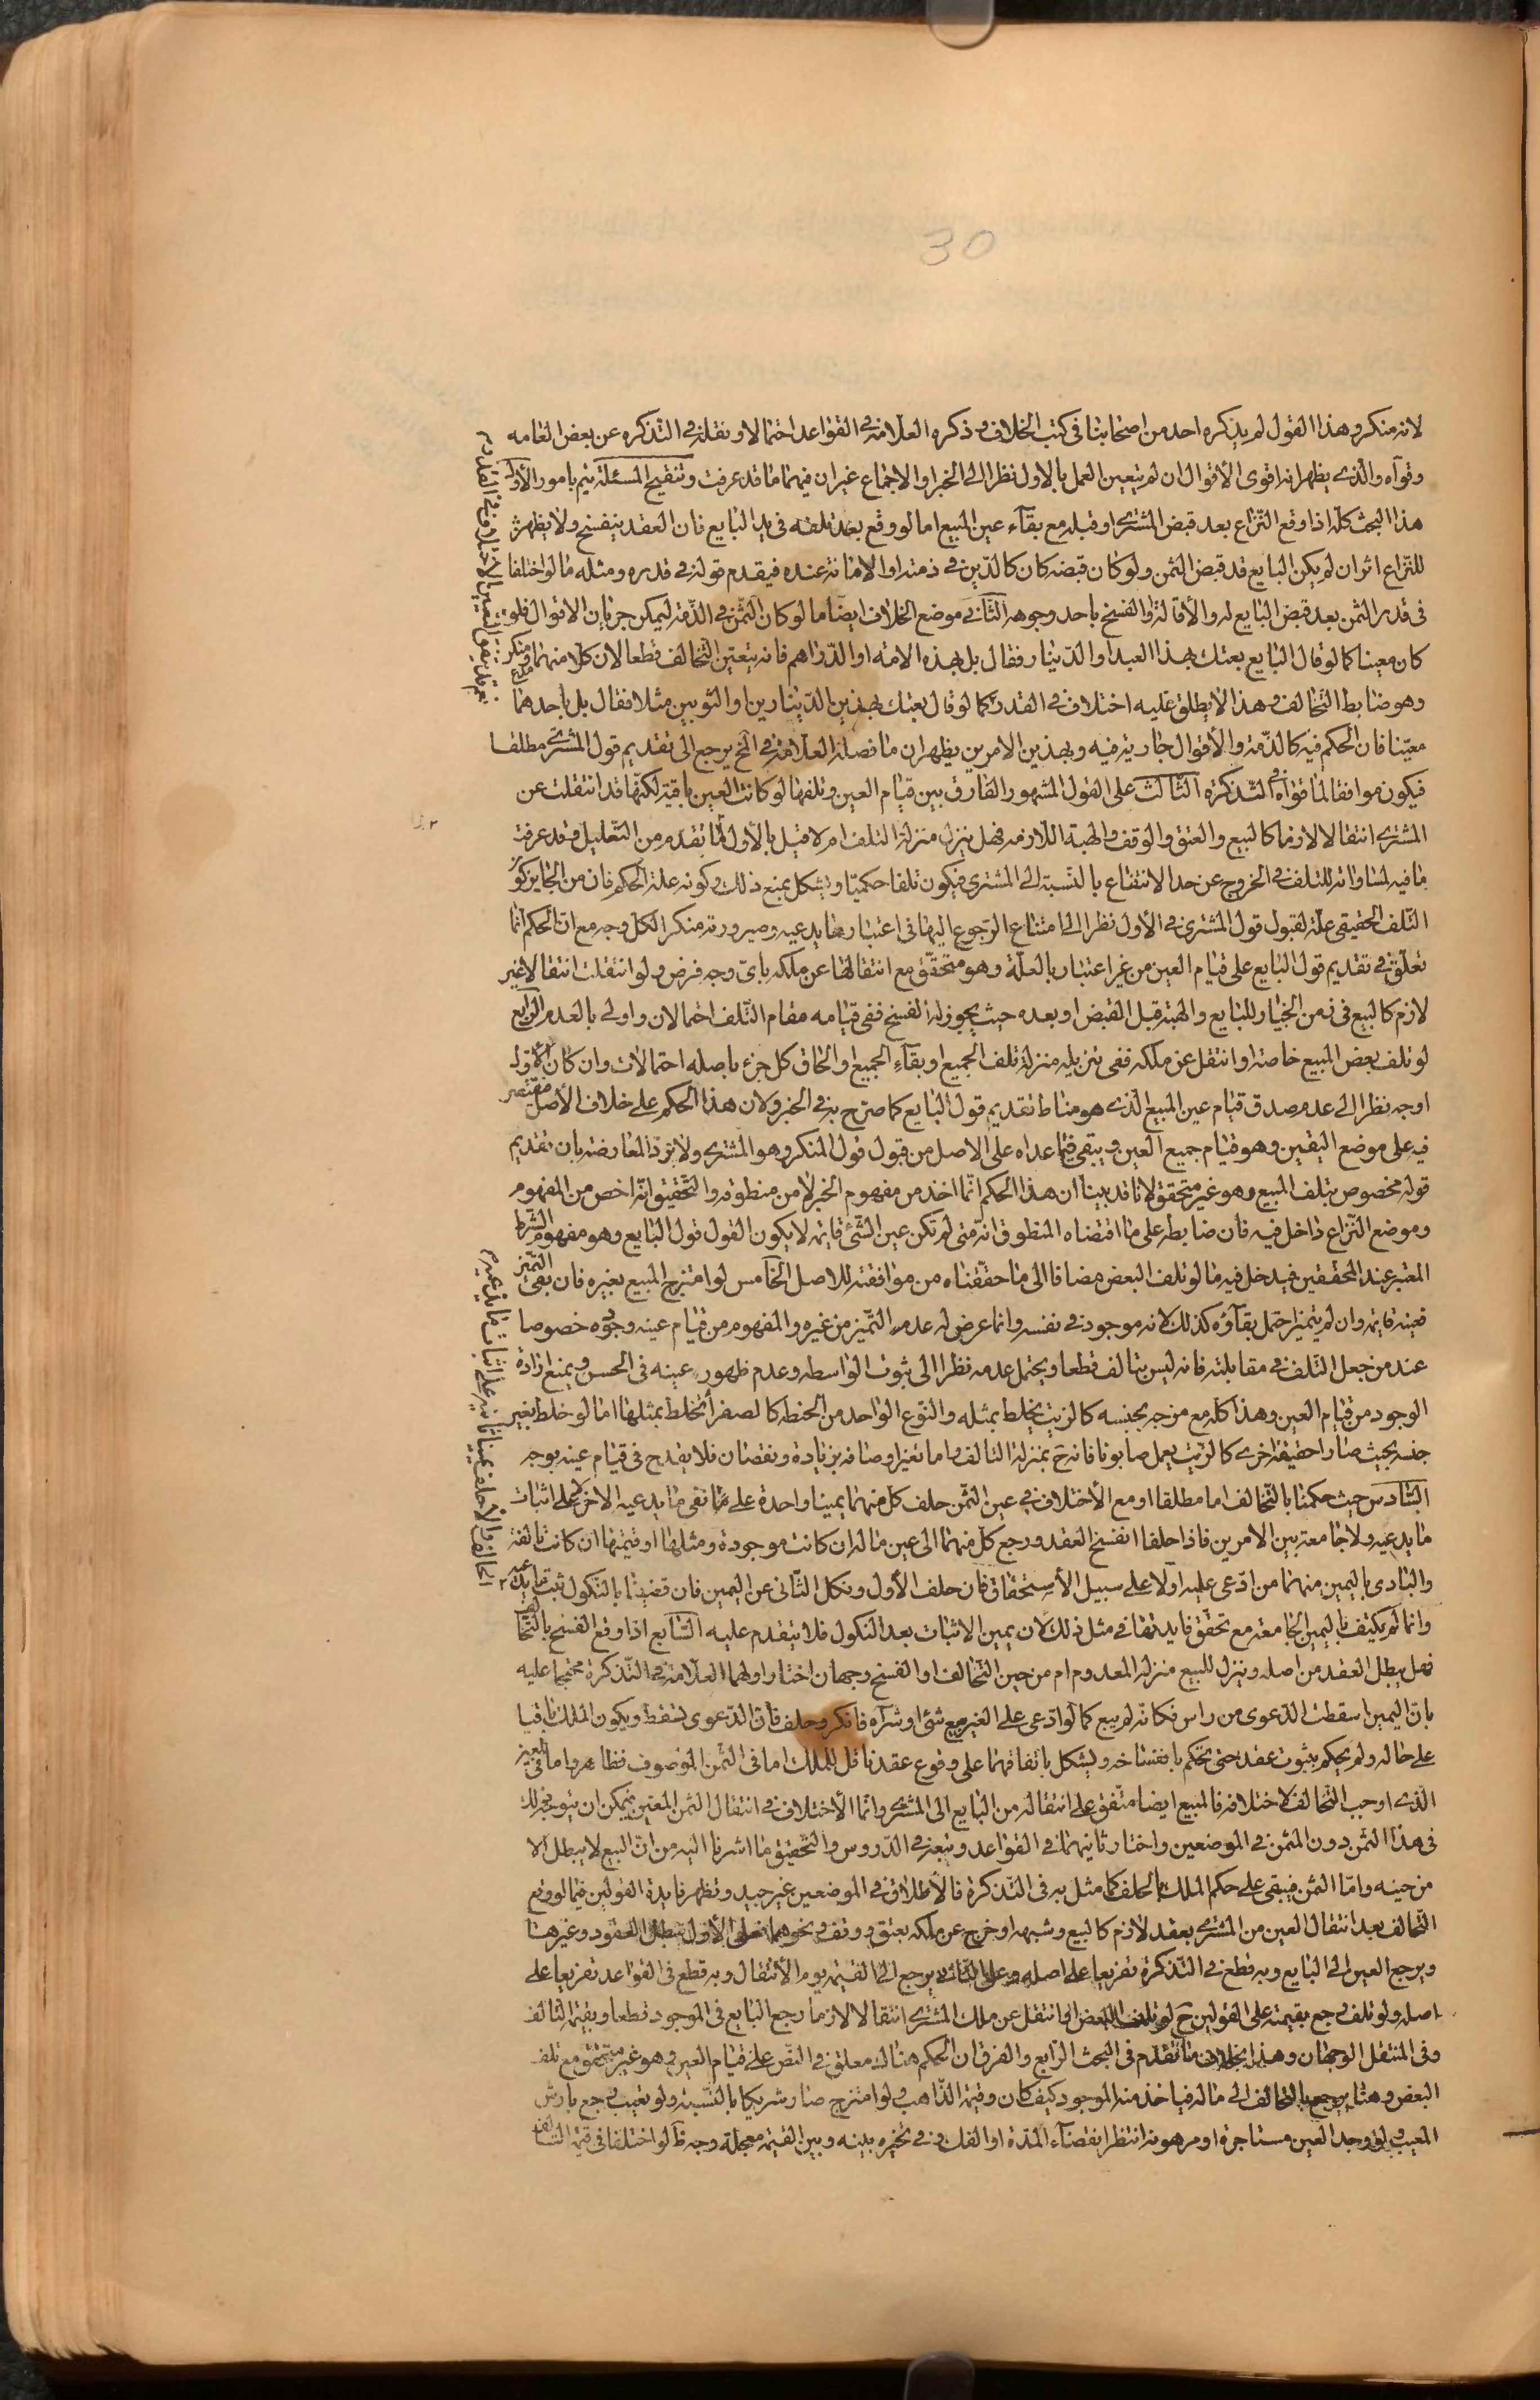 30
لانه منكر وهذا القول لم يذكره احد من اصحابنا في كتب الخلاف وذكره العلامة في القواعد احتمالا ونقله في التذكره عن بعض العامه
وقواه والذي يظهر انه اقوى الاقوال ان لم يتعين العمل بالاول نظرا الى الخبر او الاجماع غير ان فيهما ما قد عرفت وتنقيح المسئلة يتم بامور الاول
هذا البحث كله اذا وقع النزاع بعد قبض المشتري او قبله مع بقآء عين المبيع اما لو وقع بعد تلفه في يد البايع فان العقد ينفسخ ولا يظهر
للنزاع اثر ان لم يكن البايع قد قبض الثمن ولو كان قبضه كان كالدين في ذمته او الامانة عنده فيقدم قوله في قدره ومثله ما لو اختلفا
في قدر الثمن بعد قبض البايع له والاقالة او الفسخ باحد وجوهه الثاني موضع الخلاف ايضا ما لو كان الثمن في الذمة ليمكن جريان الاقوال فلو
كان معينا كما لو قال البايع بعتك بهذا العبد او الدينار فقال بل بهذه الامه او الدراهم فانه يتعين التخالف قطعا لان كلا منهما مدع ومنكر
وهو ضابط التخالف وهذا لا يطلق عليه اختلاف في القدر كما لو قال بعتك بهذين الدينارين او الثوبين مثلا فقال بل باحدهما
معينا فان الحكم فيه كالذمة والاقوال جارية فيه وبهذين الامرين يظهر ان ما فصله العلامة في الخ يرجع الى تقديم قول المشتري مطلقا
فيكون موافقا لما قواه في التذكرة الثالث على القول المشهور الفارق بين قيام العين وتلفها لو كانت العين باقية لكنها قد انتقلت عن
المشتري انتقالا لازما كالبيع والعتق والوقف والهبة اللازمه فهل ينزل منزلة التلف ام لا قيل بالاول لما تقدم من التعليل وقد عرفت
ما فيه لمساواته للتلف في الخروج عن حد الانتفاع بالنسبة الى المشتري فيكون تلفا حكميا ويشكل بمنع ذلك وكونه علة الحكم فان من الجايز كون
التلف الحقيقي علة لقبول قول المشتري في الاول نظرا الى امتناع الرجوع اليها في اعتبار ما يدعيه وصيرورته منكر الكل وجه مع ان الحكم انما
تعلق في تقديم قول البايع على قيام العين من غير اعتبار بالعلة وهو متحقق مع انتقالها عن ملكه باي وجه فرض ولو انتقلت انتقالا غير
لازم كالبيع في زمن الخيار للبايع والهبة قبل القبض او بعده حيث يجوز له الفسخ ففي قيامه مقام التلف احتمالان واولى بالعدم الرابع
لو تلف بعض المبيع خاصة او انتقل عن ملكه ففي تنزيله منزلة تلف الجميع او بقآء الجميع او الحاق كل جزء باصله احتمالات وان كان الاول
اوجه نظرا الى عدم صدق قيام عين المبيع الذي هو مناط تقديم قول البايع كما صرح به في الخبر ولان هذا الحكم على خلاف الاصل فيقتصر
فيه على موضع اليقين وهو قيام جميع العين ويبقى فيما عداه على الاصل من قبول قول المنكر وهو المشتري ولا يرد المعارضة بان تقديم
قوله مخصوص بتلف المبيع وهو غير متحقق لانا قد بينا ان هذا الحكم انما اخذ من مفهوم الخبر لا من منطوقه والتحقيق انه اخص من المفهوم
وموضع النزاع داخل فيه فان ضابطه على ما اقتضاه المنطوق انه متى لم تكن عين الشئ قايمه لا يكون القول قول البايع وهو مفهوم الشرط
المعتبر عند المحققين فيدخل فيه ما لو تلف البعض مضافا الى ما حققناه من موافقته للاصل الخامس لو امتزج المبيع بغيره فان بقي التميز
فعينه قايمه وان لم يتميز احتمل بقآؤه كذلك لانه موجود في نفسه وانما عرض له عدم التميز من غيره والمفهوم من قيام عينه وجوده خصوصا
عند من جعل التلف في مقابلته فانه ليس بتالف قطعا ويحتمل عدمه نظرا الى ثبوت الواسطه وعدم ظهور عينه في الحس ويمنع ارادة
الوجود من قيام العين وهذا كله مع مزجه بجنسه كالزيت يخلط بمثله والنوع الواحد من الحنطه كالصفرآ تخلط بمثلها اما لو خلط بغير
جنسه بحيث صارا حقيقة اخرى كالزيت يعمل صابونا فانه ح بمنزلة التالف واما تغير اوصافه بزيادة ونقصان فلا يقدح في قيام عينه بوجه
السادس حيث حكمنا بالتخالف اما مطلقا او مع الاختلاف في عين الثمن حلف كل منهما يمينا واحدة على ما نفي ما يدعيه الاخر لا على اثبات
ما يدعيه ولا جامعة بين الامرين فاذا حلفا انفسخ العقد ورجع كل منهما الى عين ماله ان كانت موجودة ومثلها او قيمتها ان كانت تالفة
والبادى باليمين منهما من ادعي عليه اولا على سبيل الاستحقاق فان حلف الاول ونكل الثاني عن اليمين فان قضينا بالنكول ثبت ما يدعيه
وانما لم يكتف باليمين الجامعه مع تحقق فايدتها في مثل ذلك لان يمين الاثبات بعد النكول فلا يتقدم عليه السابع اذا وقع الفسخ بالتخالف
فهل يبطل العقد من اصله وينزل للبيع منزلة المعدوم ام من حين التخالف او الفسخ وجهان اختار اولهما العلامة في التذكرة محتجا عليه
بان اليمين اسقطت الدعوى من راس فكانه لم يبع كما لو ادعى على الغير بيع شئ او شرآه فانكر وحلف فان الدعوى تسقط ويكون الملك باقيا
على حاله ولم يحكم بثبوت عقد حتى يحكم بانفساخه ويشكل باتفاقهما على وقوع عقد ناقل للملك اما في الثمن الموصوف فظاهر واما في المعين
الذي اوجب التخالف لاختلافه فالمبيع ايضا متفق على انتقاله من البايع الى المشتري وانما الاختلاف في انتقال الثمن المعين فيمكن ان يتوجه ذلك
في هذا الثمن دون المثمن في الموضعين واختار ثانيهما في القواعد وتبعه في الدروس والتحقيق ما اشرنا اليه من ان البيع لا يبطل الا
من حينه واما الثمن فيبقى على حكم الملك بالحلف كما مثل به في التذكرة فالاطلاق في الموضعين غير جيد وتظهر فايدة القولين فيما لو وقع
التخالف بعد انتقال العين من المشتري بعقد لازم كالبيع وشبهه او خرج عن ملكه بعتق ووقف ونحوهما فعلى الاول تبطل العقود وغيرها
ويرجع العين الى البايع وبه قطع في التذكرة تفريعا على اصله وعلى الثاني يرجع الى القيمة يوم الانتقال وبه قطع في القواعد تفريعا على
اصله ولو تلف رجع بقيمته على القولين ح لو تلف البعض او انتقل عن ملك المشتري انتقالا لازما رجع البايع في الموجود قطعا وبقيمة التالف
وفي المنتقل الوجهان وهذا بخلاف ما تقدم في البحث الرابع والفرق ان الحكم هنالك معلق في النص على قيام العين وهو غير متحقق مع تلف
البعض وهنا يرجع بالتخالف الى ماله فياخذ منه الموجود كيف كان وقيمة الذاهب ولو امتزج صار شريكا بالنسبة ولو تعيب رجع بارش
المعيب ولو وجد العين مستاجرة او مرهونة انتظر انقضآء المدة او الفك وفي تخيره بينه وبين القيمة معجلة وجه ط لو اختلفا في قيمة التالف